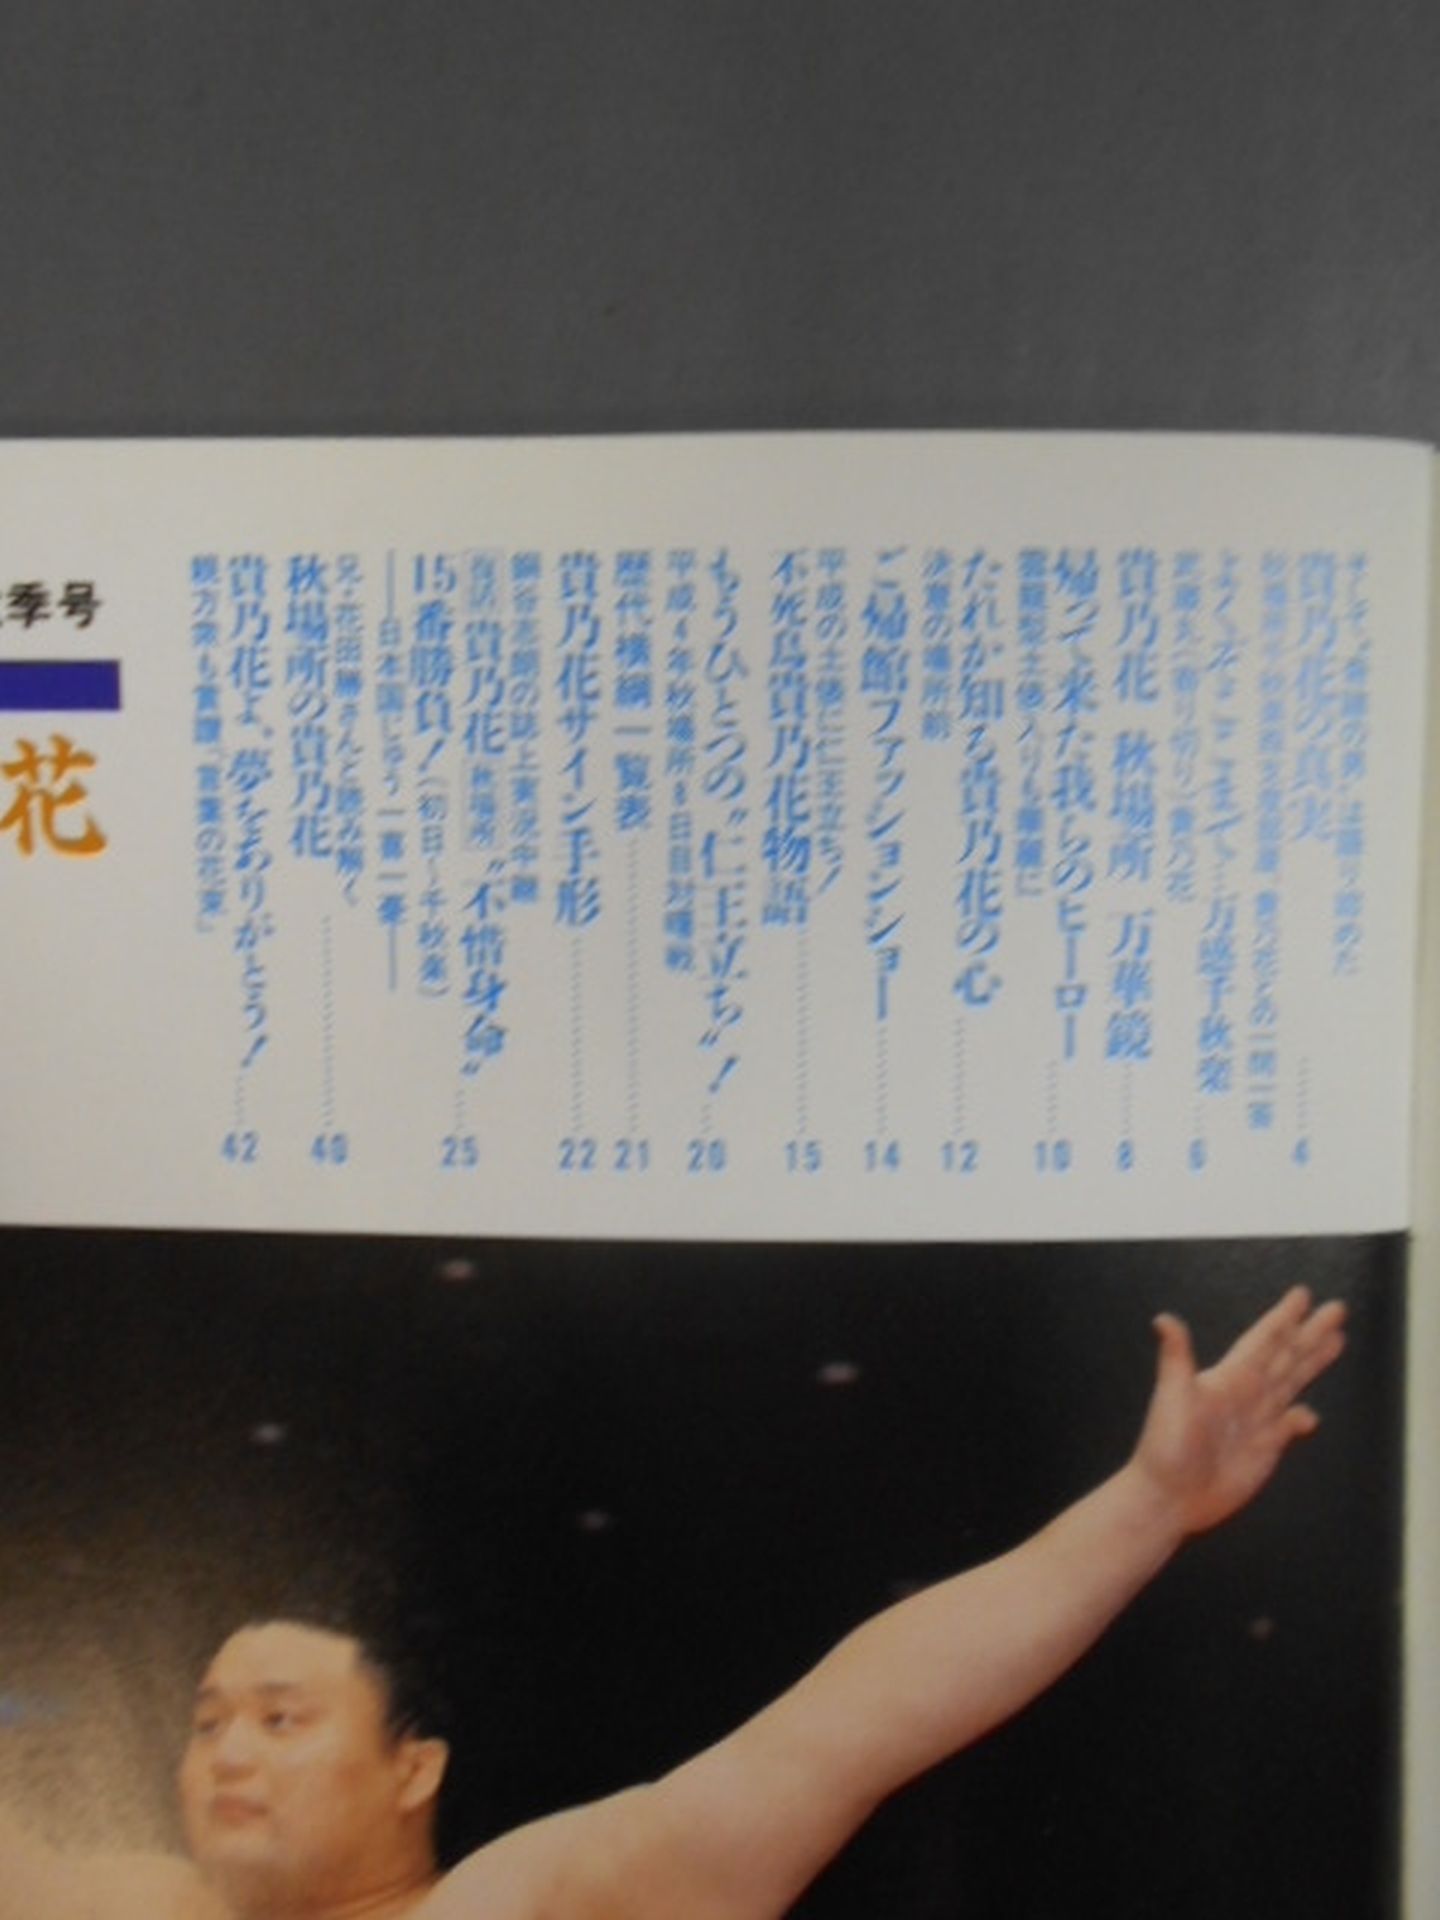 貴乃花の真実 4
よくぞここまで…万感千秋楽 6
武蔵丸(寄り切り)貴乃花
貴乃花 秋場所 万華鏡 8
帰って来た我らのヒーロー 10
雲龍型土俵入りも華麗に
たれか知る貴乃花の心 12
決意の場所前
ご帰館ファッションショー 14
平成の土俵に仁王立ち!
不死鳥貴乃花物語 15
もうひとつの“仁王立ち”! 20
平成4年秋場所8日目対曙戦
歴代横綱一覧表 21
貴乃花サイン手形 22
の誌上実況中継
貴乃花 秋場所 “不惜身命” 25
15番勝負!(初日〜千秋楽)
――日本国じゅう一喜一憂――
兄・花田勝さんと読み解く
秋場所の貴乃花 40
貴乃花よ、夢をありがとう! 42
親方衆も賞讃「言葉の花束」
季号
花